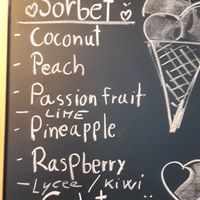 Sorbet
- Coconut
- Peach
- Passion fruit
- LIME
- Pineapple
- Raspberry
- Lycee / Kiwi